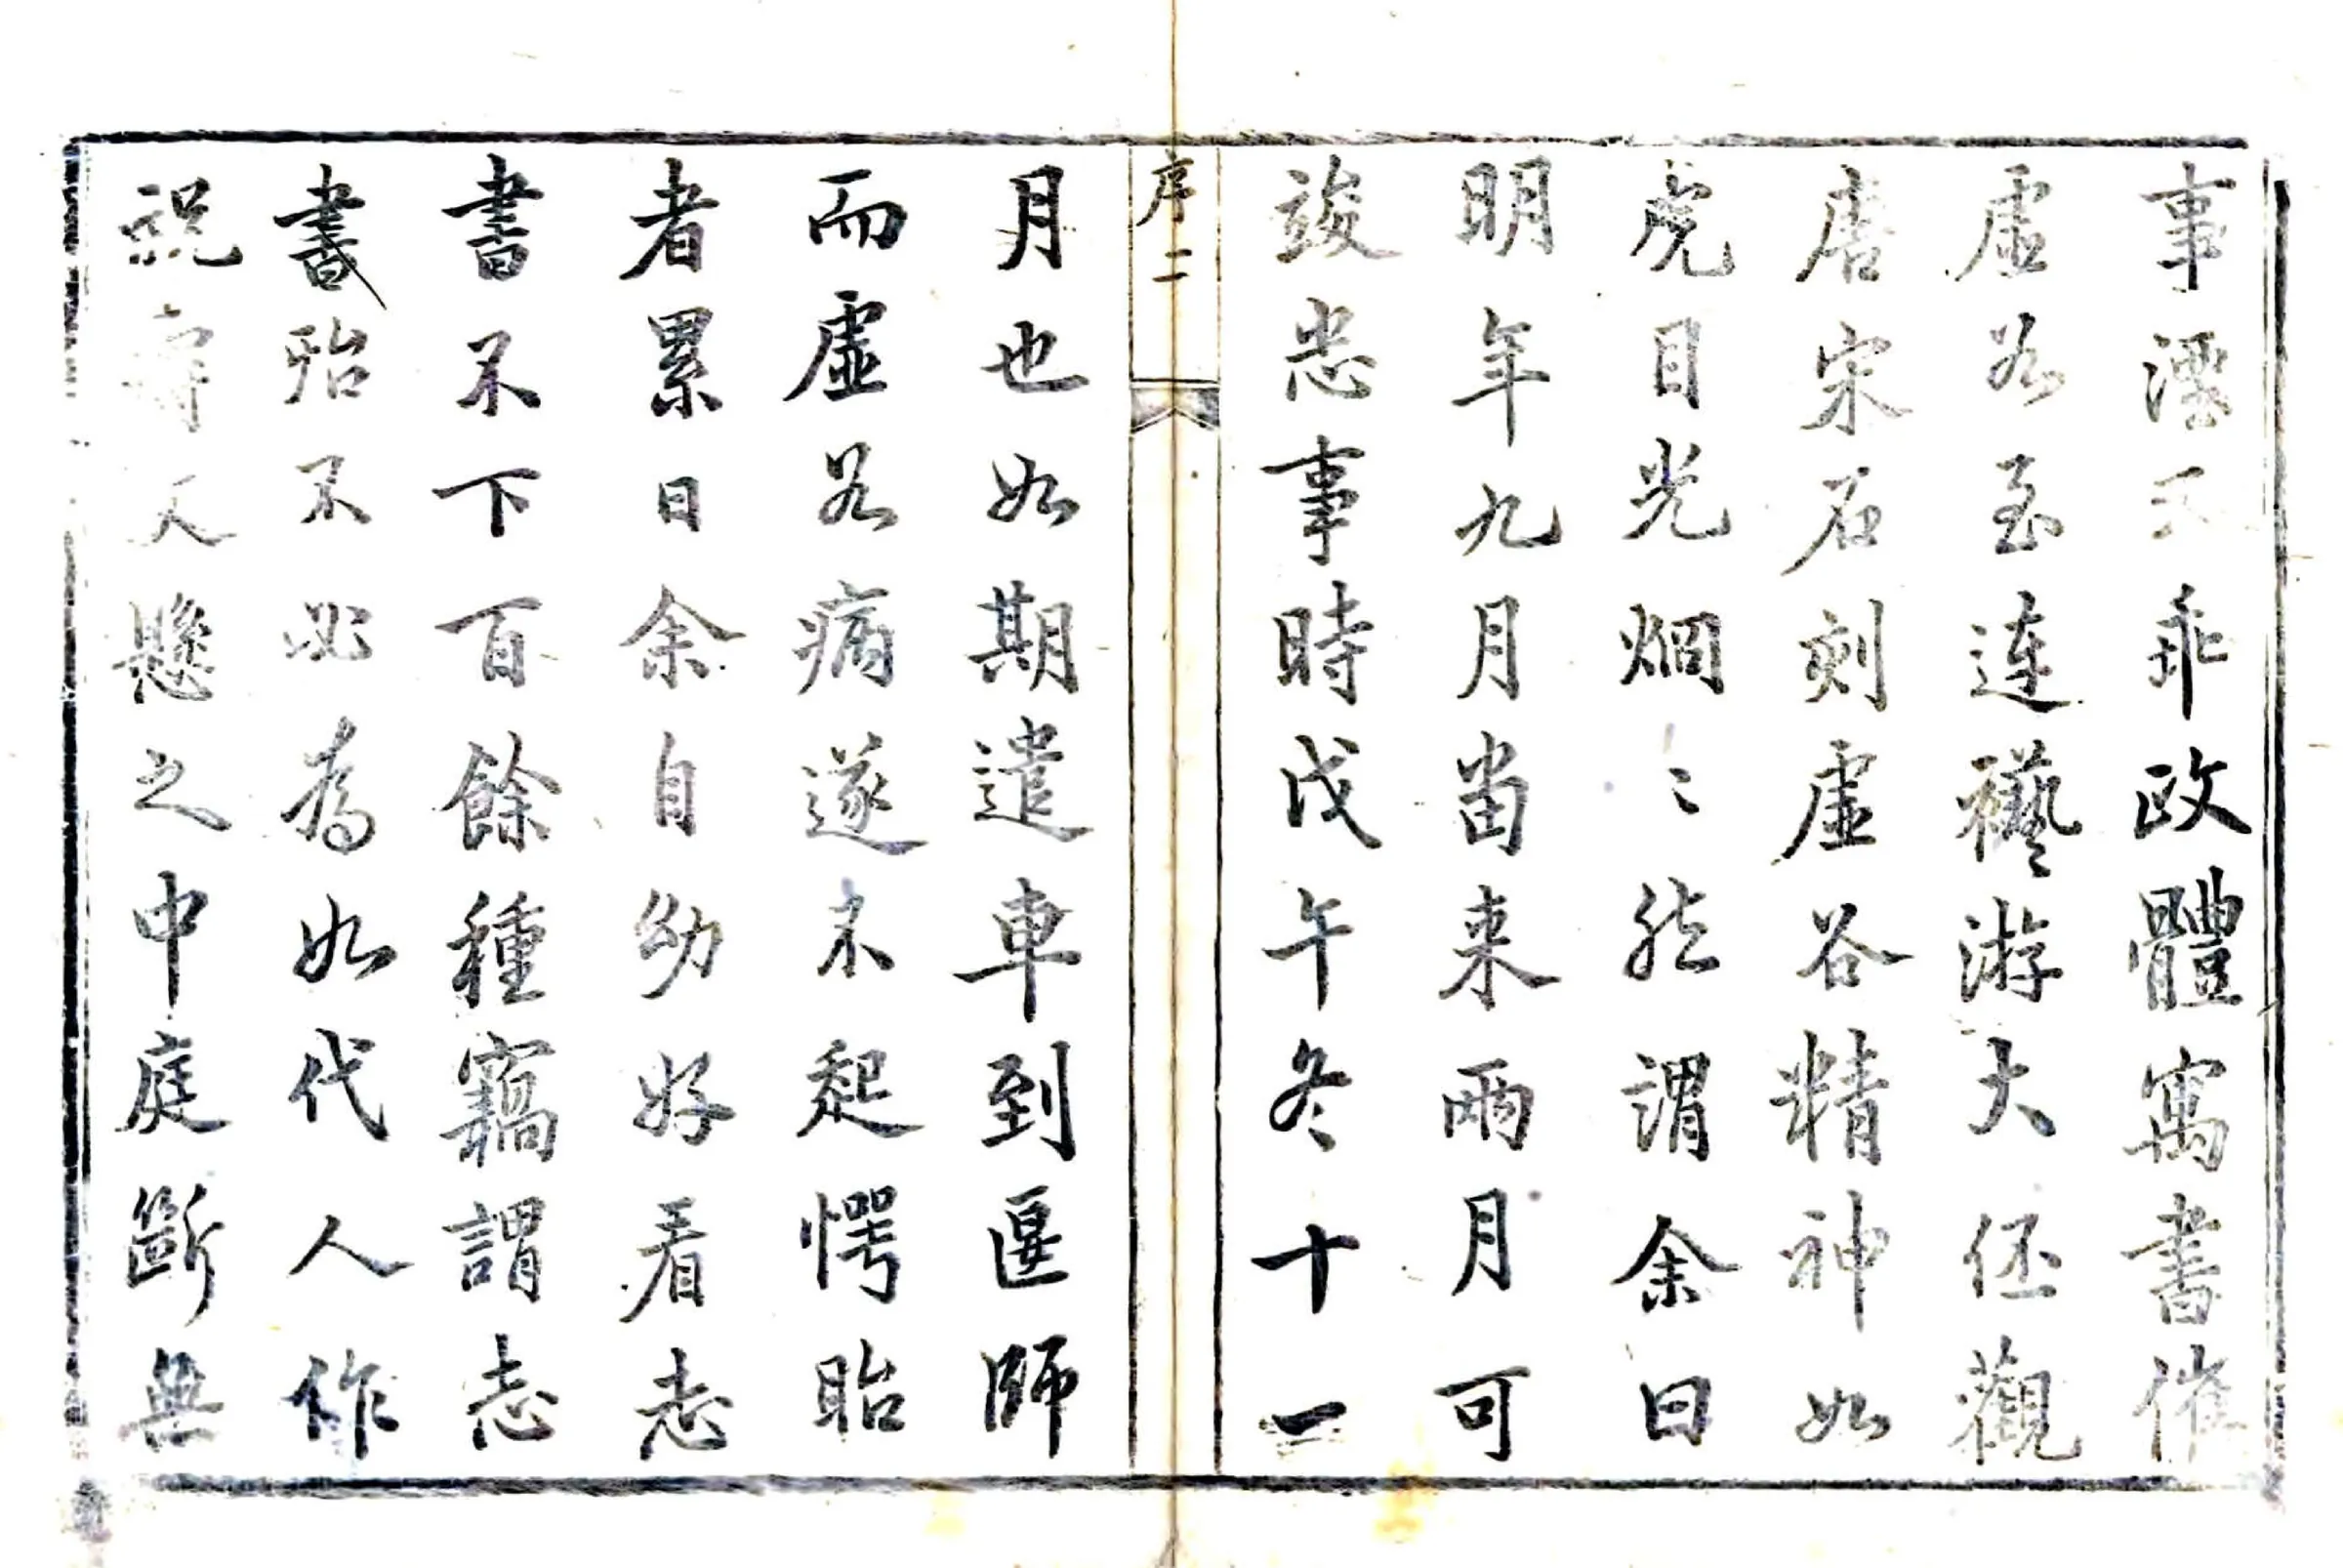 事湮乖政體寓書催
虛谷至連襼游大伾觀
唐宋石刻虛谷精神如
虎目光烱〻然謂余曰
明年九月當来兩月可
竣志事時戊午冬十一
序二
月也如期遣車到匽師
而虛谷病遂未起愕眙
者累日余自幼好看志
書不下百餘種竊謂志
書殆不必為如代人作
祝壽文懸之中庭斷無